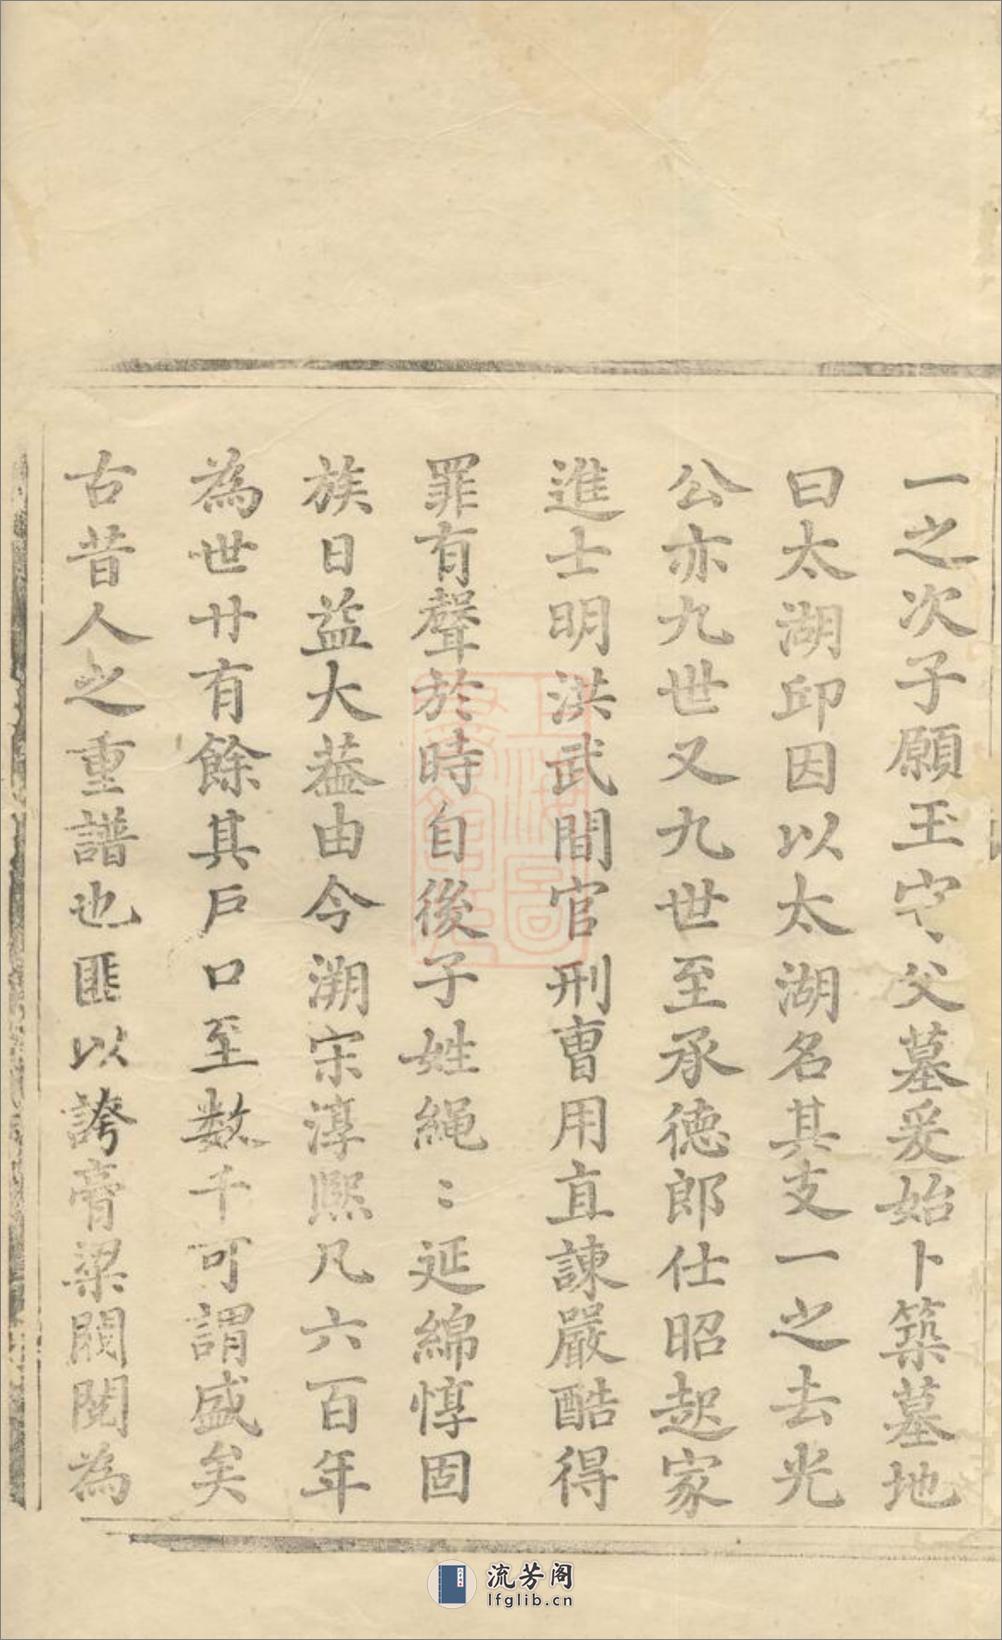 一之次子願玉守父墓爰始卜築墓地
曰太湖邱因以太湖名其支一之去光
公亦九世又九世至承德郎仕昭起家
進士明洪武間官刑曹用直諫嚴酷得
罪有聲於時自後子姓繩〻延綿惇固
族日益大葢由今溯宋淳熙凡六百年
為世廿有餘其戶口至数千可謂盛矣
古昔人之重譜也匪以誇膏粱閥閱為
流芳阁
lfglib.cn